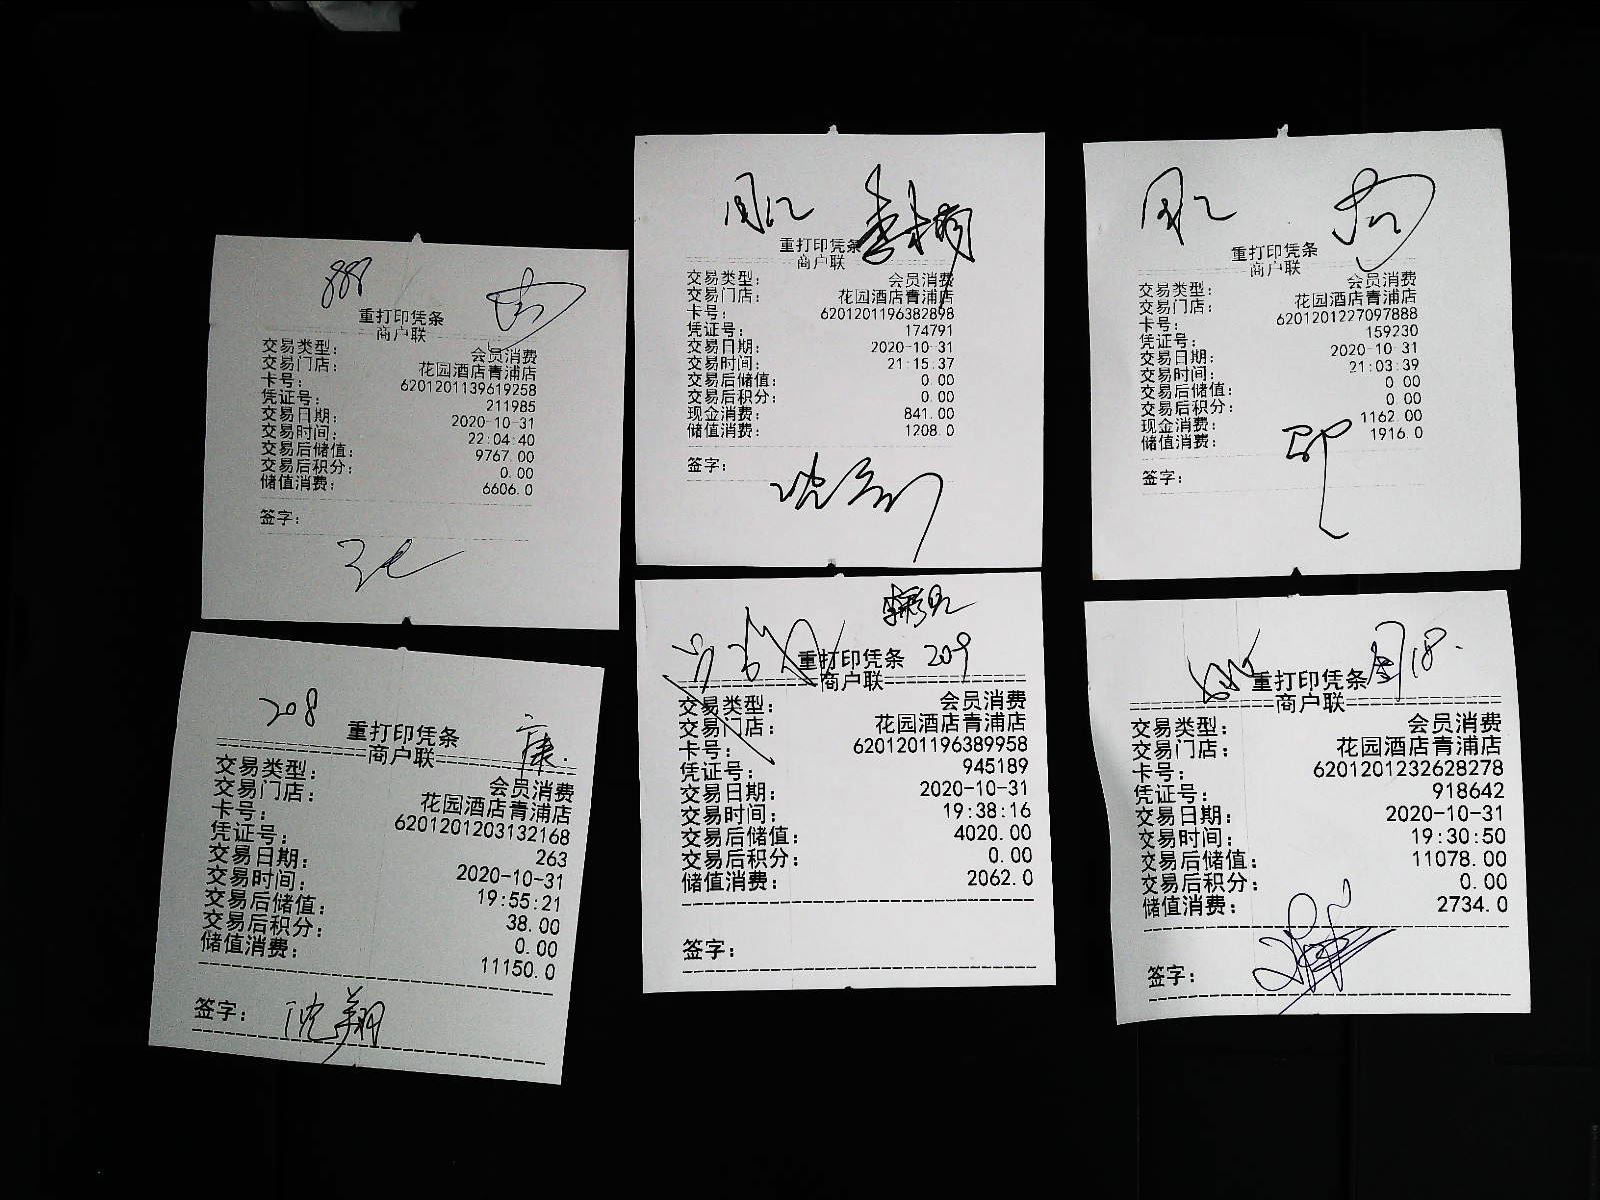 888
重打印凭条
商户联
交易类型: 会员消费
交易门店: 花园酒店青浦店
卡号: 6201201139619258
凭证号: 211985
交易日期: 2020-10-31
交易时间: 22:04:40
交易后储值: 9767.00
交易后积分: 0.00
储值消费: 6606.0
签字:
重打印凭条
商户联
交易类型: 会员消费
交易门店: 花园酒店青浦店
卡号: 6201201196382898
凭证号: 174791
交易日期: 2020-10-31
交易时间: 21:15:37
交易后储值: 0.00
交易后积分: 0.00
现金消费: 841.00
储值消费: 1208.0
签字:
重打印凭条
商户联
交易类型: 会员消费
交易门店: 花园酒店青浦店
卡号: 6201201227097888
凭证号: 159230
交易日期: 2020-10-31
交易时间: 21:03:39
交易后储值: 0.00
交易后积分: 0.00
现金消费: 1162.00
储值消费: 1916.0
签字:
208 康.
重打印凭条
商户联
交易类型: 会员消费
交易门店: 花园酒店青浦店
卡号: 6201201203132168
凭证号: 263
交易日期: 2020-10-31
交易时间: 19:55:21
交易后储值: 38.00
交易后积分: 0.00
储值消费: 11150.0
签字: 沈翔
重打印凭条 209
商户联
交易类型: 会员消费
交易门店: 花园酒店青浦店
卡号: 6201201196389958
凭证号: 945189
交易日期: 2020-10-31
交易时间: 19:38:16
交易后储值: 4020.00
交易后积分: 0.00
储值消费: 2062.0
签字:
重打印凭条 18.
商户联
交易类型: 会员消费
交易门店: 花园酒店青浦店
卡号: 6201201232628278
凭证号: 918642
交易日期: 2020-10-31
交易时间: 19:30:50
交易后储值: 11078.00
交易后积分: 0.00
储值消费: 2734.0
签字: